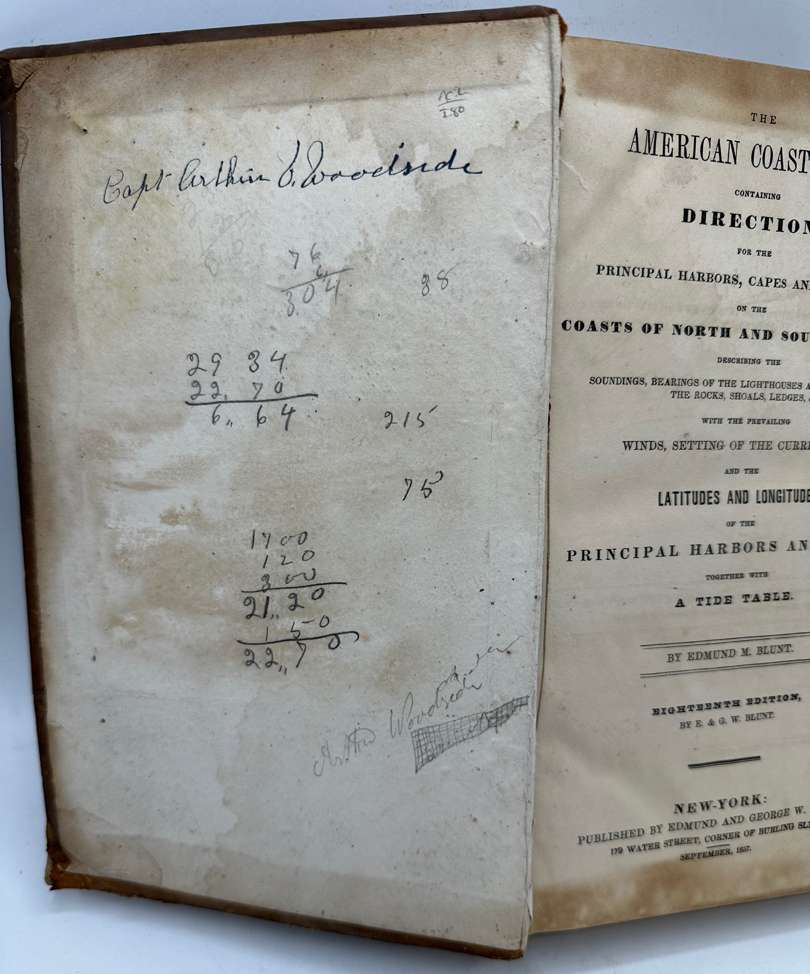 180
Capt Arthur V. Woodside
76
4
304
38
29 34
22,, 70
6,, 64
215
75
1700
120
300
21,, 20
1 50
22,, 70
Arthur Woodside
THE
AMERICAN COAST
CONTAINING
DIRECTION
FOR THE
PRINCIPAL HARBORS, CAPES AN
ON THE
COASTS OF NORTH AND SOU
DESCRIBING THE
SOUNDINGS, BEARINGS OF THE LIGHTHOUSES A
THE ROCKS, SHOALS, LEDGES,
WITH THE PREVAILING
WINDS, SETTING OF THE CURR
AND THE
LATITUDES AND LONGITUDE
OF THE
PRINCIPAL HARBORS AN
TOGETHER WITH
A TIDE TABLE.
BY EDMUND M. BLUNT.
EIGHTEENTH EDITION,
BY E. & G. W. BLUNT.
NEW-YORK:
PUBLISHED BY EDMUND AND GEORGE W.
179 WATER STREET, CORNER OF BURLING SL
SEPTEMBER, 1857.